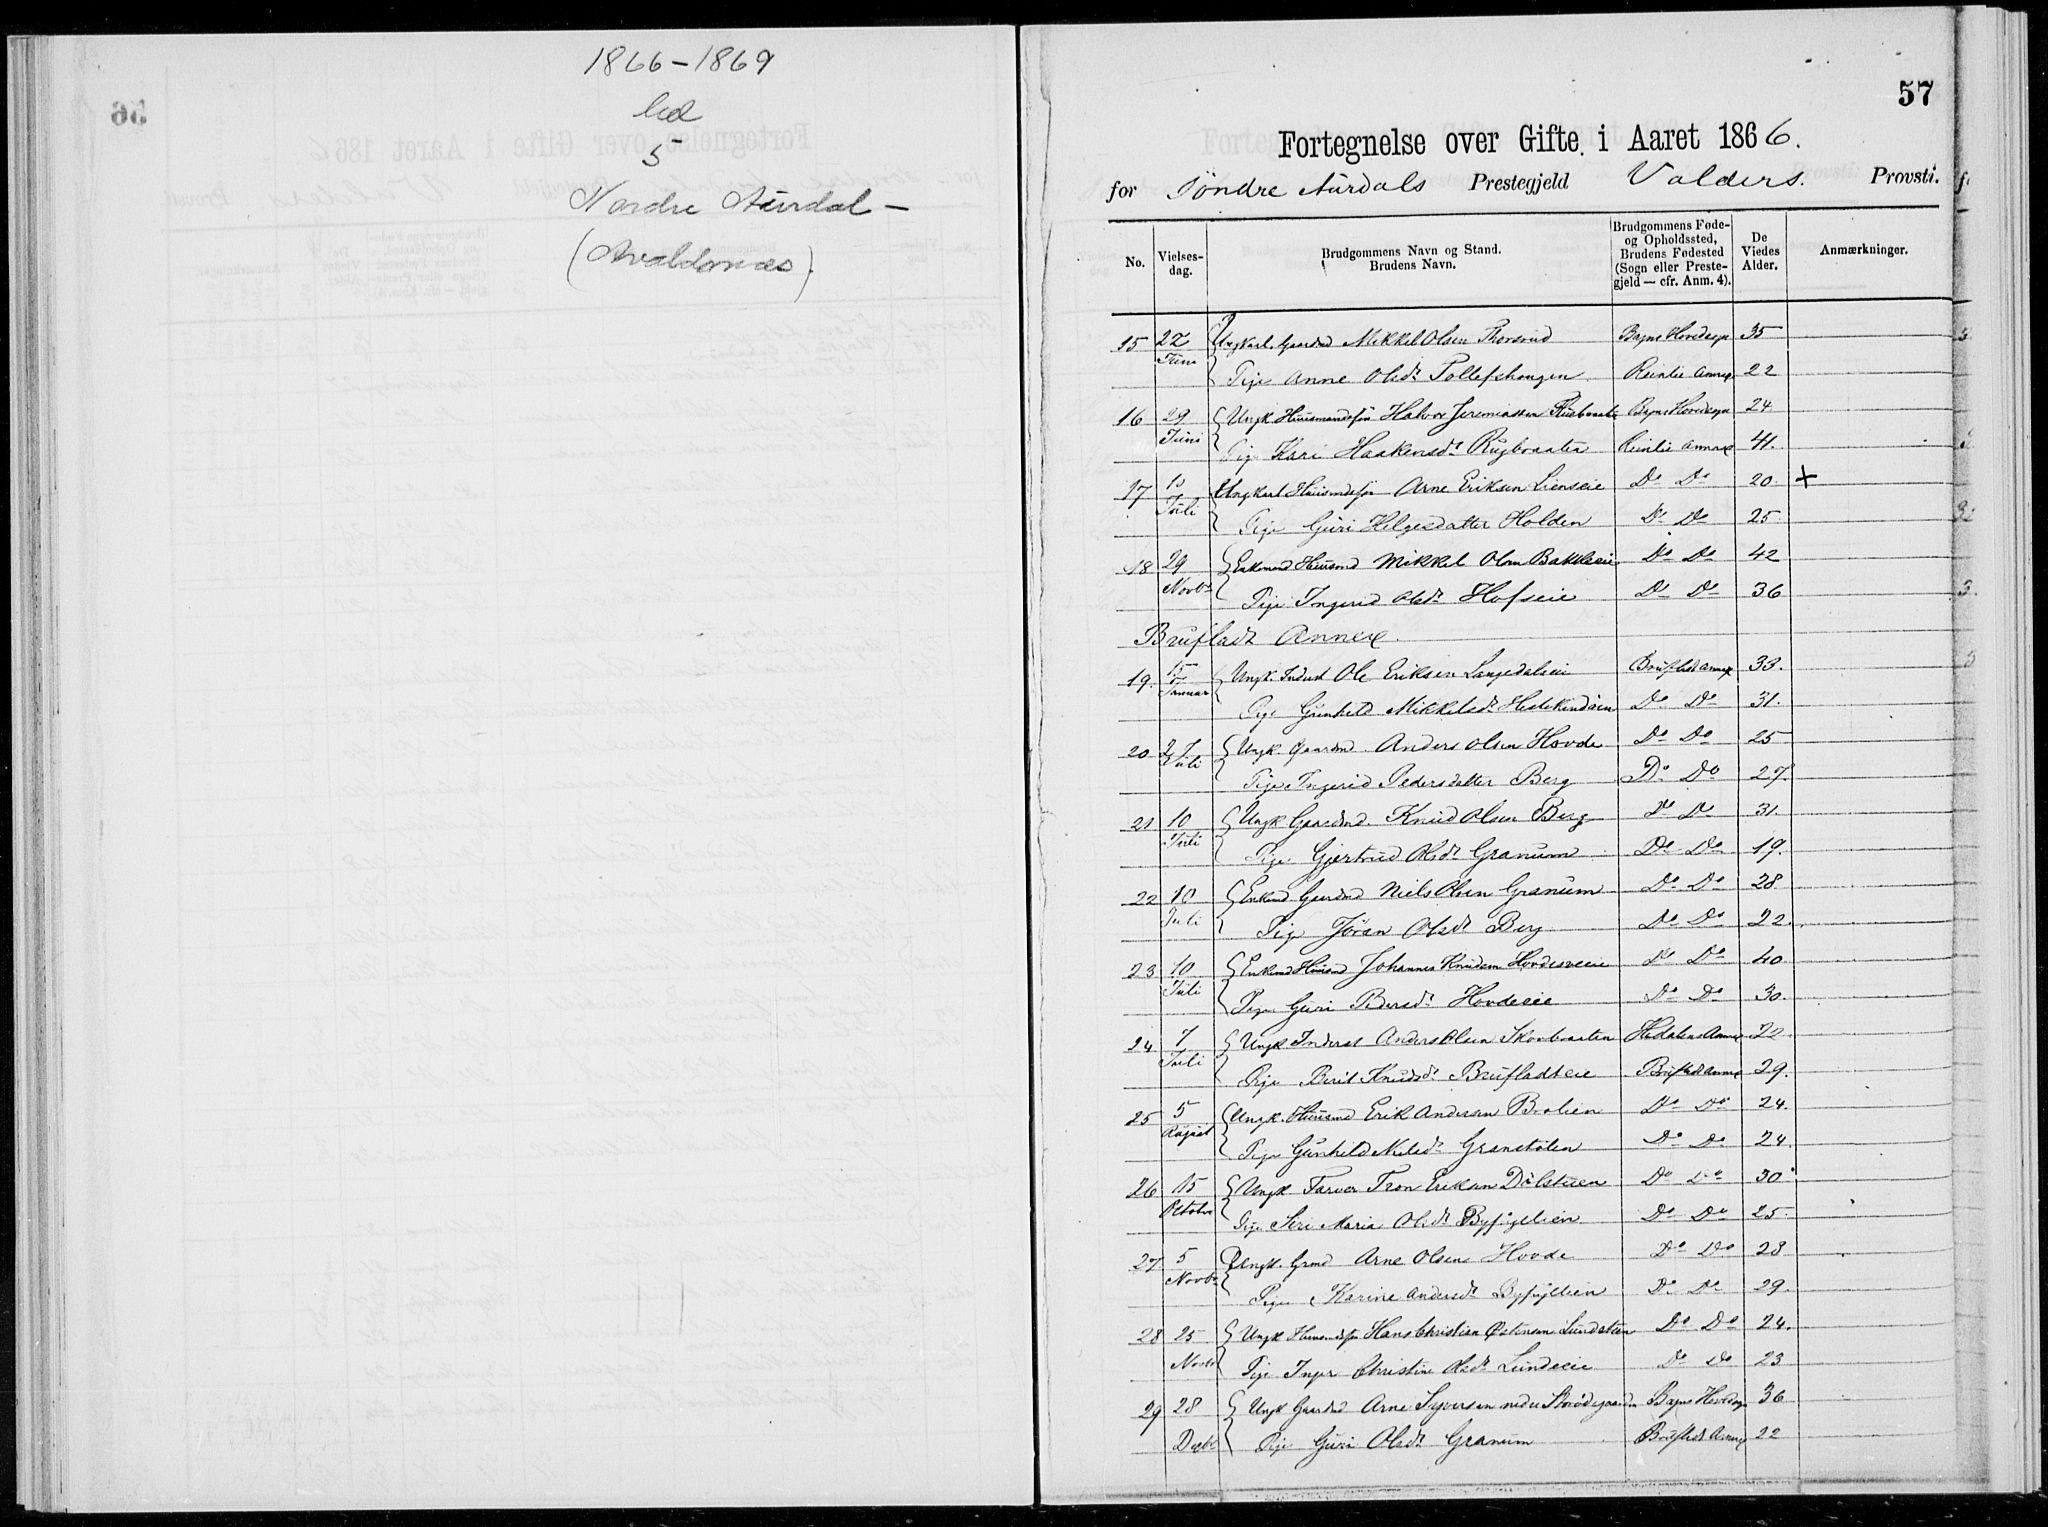 1866-1869
5
Nordre Aurdal -
(Avaldsnæs).
57
Fortegnelse over Gifte i Aaret 1866.
for Söndre Aurdals Prestegjeld Valders. Provsti.
No. Vielses-dag. Brudgommens Navn og Stand. Brudens Navn. Brudgommens Føde- og Opholdssted, Brudens Fødested (Sogn eller Prestegjeld — cfr. Anm. 4). De Viedes Alder. Anmærkninger.
15 22 Juni Ungkarl. Gaardmd Mikkel Olsen Thorsrud Bagns Hovedsogn 35
Pige Anne Olsdr Tollefshaugen Reinlie Annex 22
16 29 Juni Ungk. Huusmandssøn Halvor Jeremiassen Bagns Hovedsogn 24
Pige Kari Haakensdr Rugbraaten Reinlie Annex 41.
17 10 Juli Ungkarl Huusmdssøn Arne Eriksen Lienseie Do Do 20. x
Pige Guri Helgesdatter Holden Do Do 25.
18 29 Novbr Enkemand Huusmd Mikkel Olsen Bakkeeie Do Do 42
Pige Ingerid Olsdr Hofseie Do Do 36
Brufladt Annex.
19. 15 Januar Ungk. Inderst Ole Eriksen Langedalseie Brufladt Annex 33.
Pige Gunhild Mikkelsdr Do Do 31.
20 Juli Ungk. Gaardmd Anders Olsen Hovde Do Do 25
Pige Ingerid Pedersdatter Berg Do Do 27.
21 10 Juli Ungk Gaardmd. Knud Olsen Berg Do Do 31.
Pige Gjertrud Olsdr Granum Do Do 19.
22 10 Juli Enkemd Gaardmd Niels Olsen Granum Do Do 28
Pige Jöran Olsdr Berg Do Do 22.
23 10 Juli Enkemd Huusmd Johannes Knudsen Hovdesveie Do Do 40
Pige Guri Pedersdr Hovdeeie Do Do 30.
24 7 Juli Ungk Inderst Anders Olsen Skovbraaten Hedalens Annex 22.
Pige Berit Knudsdr Brufladteie Brufladt Annex 29.
25 5 August Ungk. Huusmd Erik Andersen Brolien Do Do 24.
Pige Gunhild Nilsdr Granstølen Do Do 24.
26 15 Octobr Ungk Farver Tron Eriksen Dølsteen Do Do 30
Pige Siri Maria Olsdr Byfuglien Do Do 25.
27 5 Novbr Ungk. Grmd Arne Olsen Hovde Do Do 28
Pige Karine Andersdr Byfuglien Do Do 29.
28 25 Novbr Ungk Huusmdssøn Hans Christian Østensen Lundsteen Do Do 24.
Pige Inger Christine Olsdr Lundeeie Do Do 23
29 28 Decbr Ungk Gaardmd Arne Syversen nedre Bagns Hovedsogn 36
Pige Guri Olsdr Granum Brufladt Annex 22